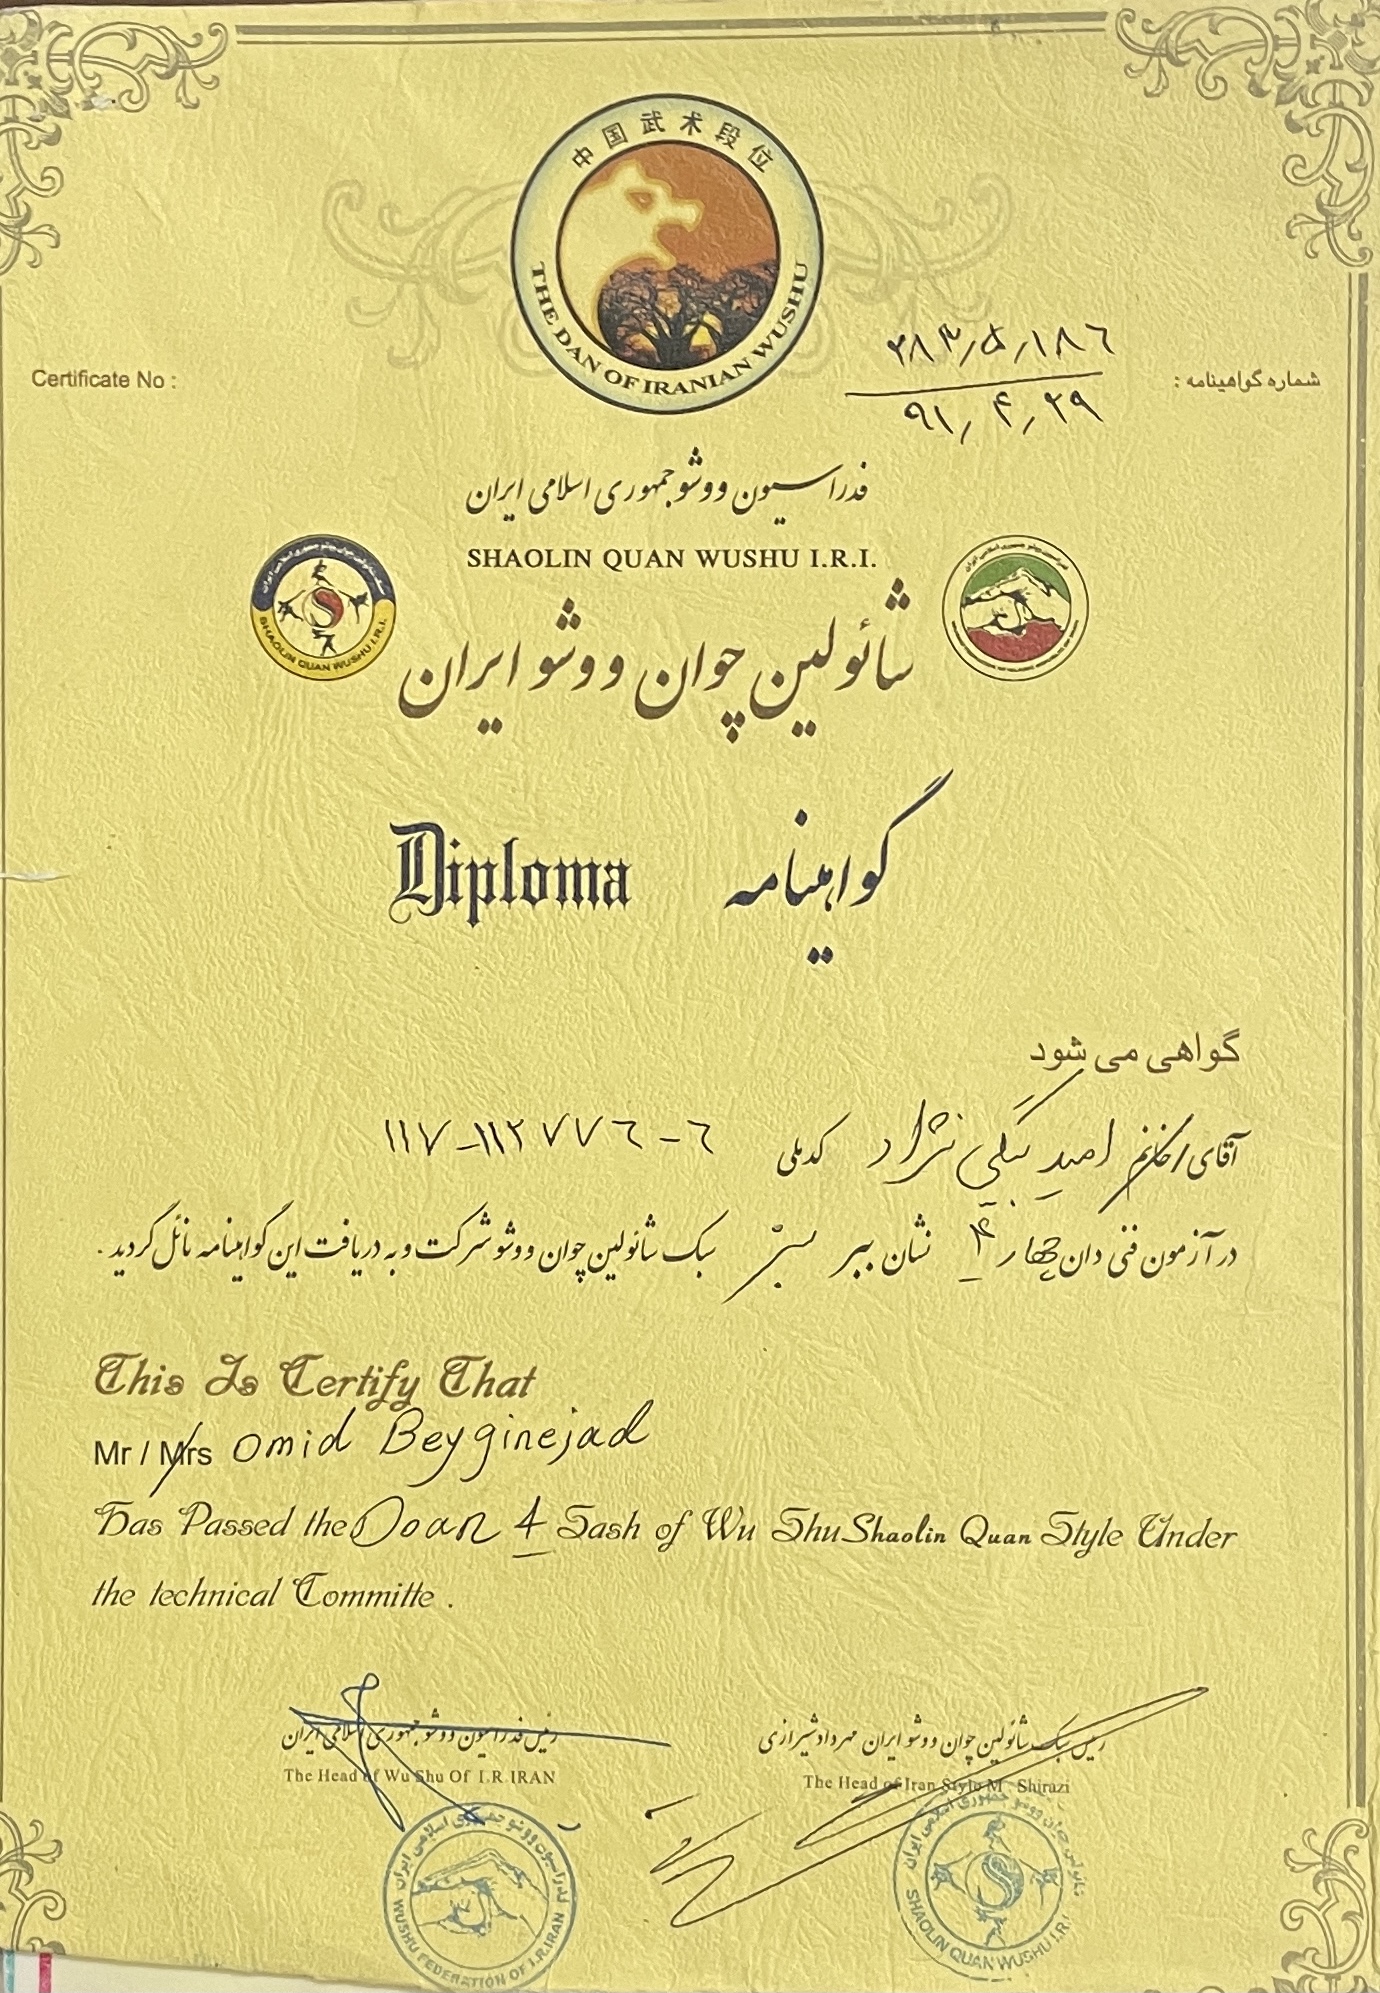 中国武术段位
THE DAN OF IRANIAN WUSHU
Certificate No :
شماره گواهینامه :
۲۸۳/۵/۱۸۶
۹۱/۴/۲۹
فدراسیون ووشو جمهوری اسلامی ایران
SHAOLIN QUAN WUSHU I.R.I.
SHAOLIN QUAN WUSHU I.R.I.
شائولین چوان ووشو ایران
Diploma گواهینامه
گواهی می شود
آقای/خانم امید بیگی نژاد کدملی ۱۱۷-۱۱۲۷۷۶-۶
در آزمون فنی دان چهار ۴ نشان ببر سبز سبک شائولین چوان ووشو شرکت و به دریافت این گواهینامه نائل گردید .
This Is Certify That
Mr / Mrs Omid Beyginejad
Has Passed the Doan 4 Sash of Wu Shu Shaolin Quan Style Under
the technical Committe .
رئیس سبک شائولین چوان ووشو ایران مهرداد شیرازی
The Head of Iran Style M . Shirazi
رئیس فدراسیون ووشو جمهوری اسلامی ایران
The Head of Wu Shu Of I.R IRAN
فدراسیون ووشو جمهوری اسلامی ایران
WUSHU FEDERATION OF I.R.IRAN
SHAOLIN QUAN WUSHU I.R.I